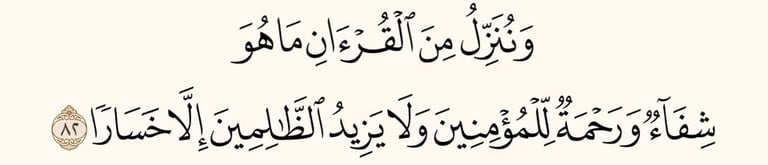 وَنُنَزِّلُ مِنَ ٱلْقُرْءَانِ مَا هُوَ
شِفَآءٌ وَرَحْمَةٌ لِّلْمُؤْمِنِينَ وَلَا يَزِيدُ ٱلظَّٰلِمِينَ إِلَّا خَسَارًا ٨٢